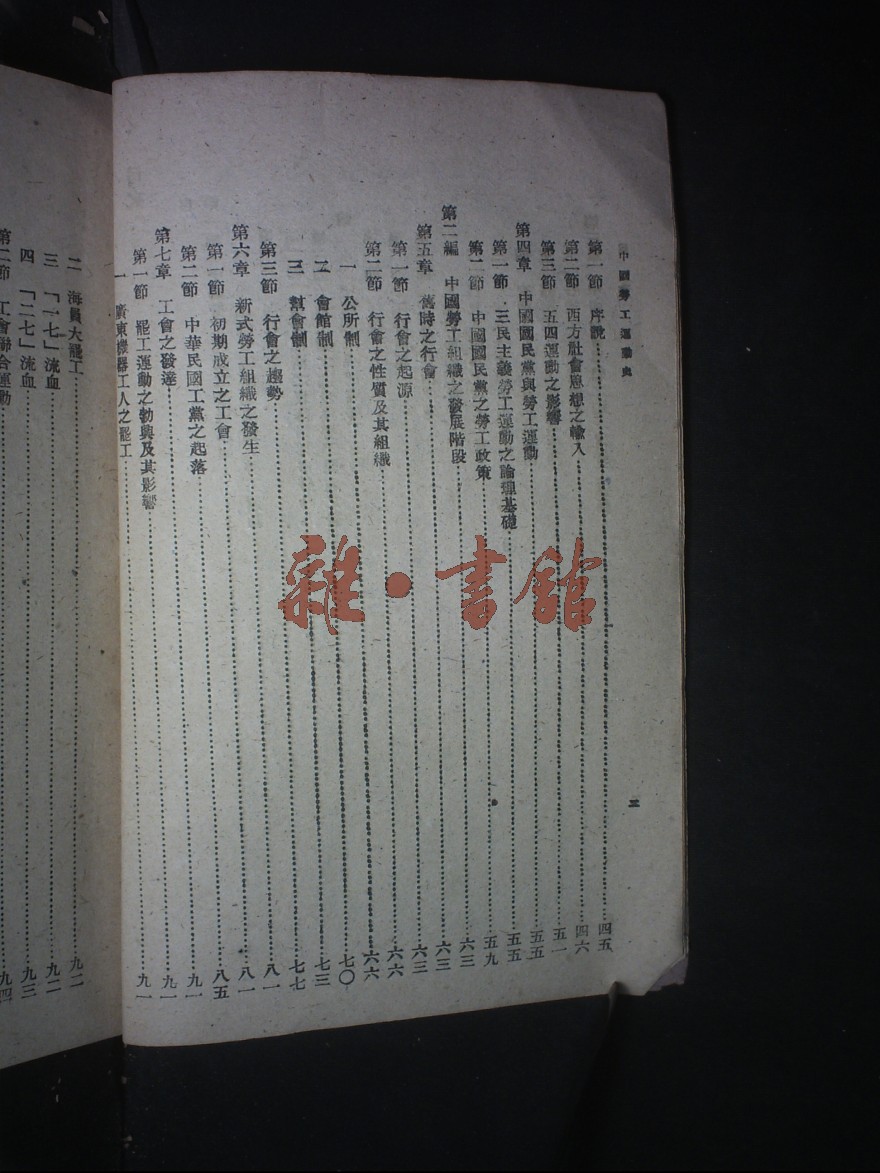 中國勞工運動史
第一節 序說 四五
第二節 西方社會思想之輸入 四六
第三節 五四運動之影響 五一
第四章 中國國民黨與勞工運動 五五
第一節 三民主義勞工運動之論理基礎 五五
第二節 中國國民黨之勞工政策 五九
第二編 中國勞工組織之發展階段 六三
第五章 舊時之行會 六三
第一節 行會之起源 六三
第二節 行會之性質及其組織 六六
一 公所制 六六
二 會館制 七〇
三 幫會制 七三
第三節 行會之趨勢 七七
第六章 新式勞工組織之發生 八一
第一節 初期成立之工會 八一
第二節 中華民國工黨之起落 八五
第七章 工會之發達 九一
第一節 罷工運動之勃興及其影響 九一
一 廣東機器工人之罷工 九一
三
二 海員大罷工 九二
三 「一七」流血 九二
四 「二七」流血 九三
第二節 工會聯合運動 九四
雜·書館